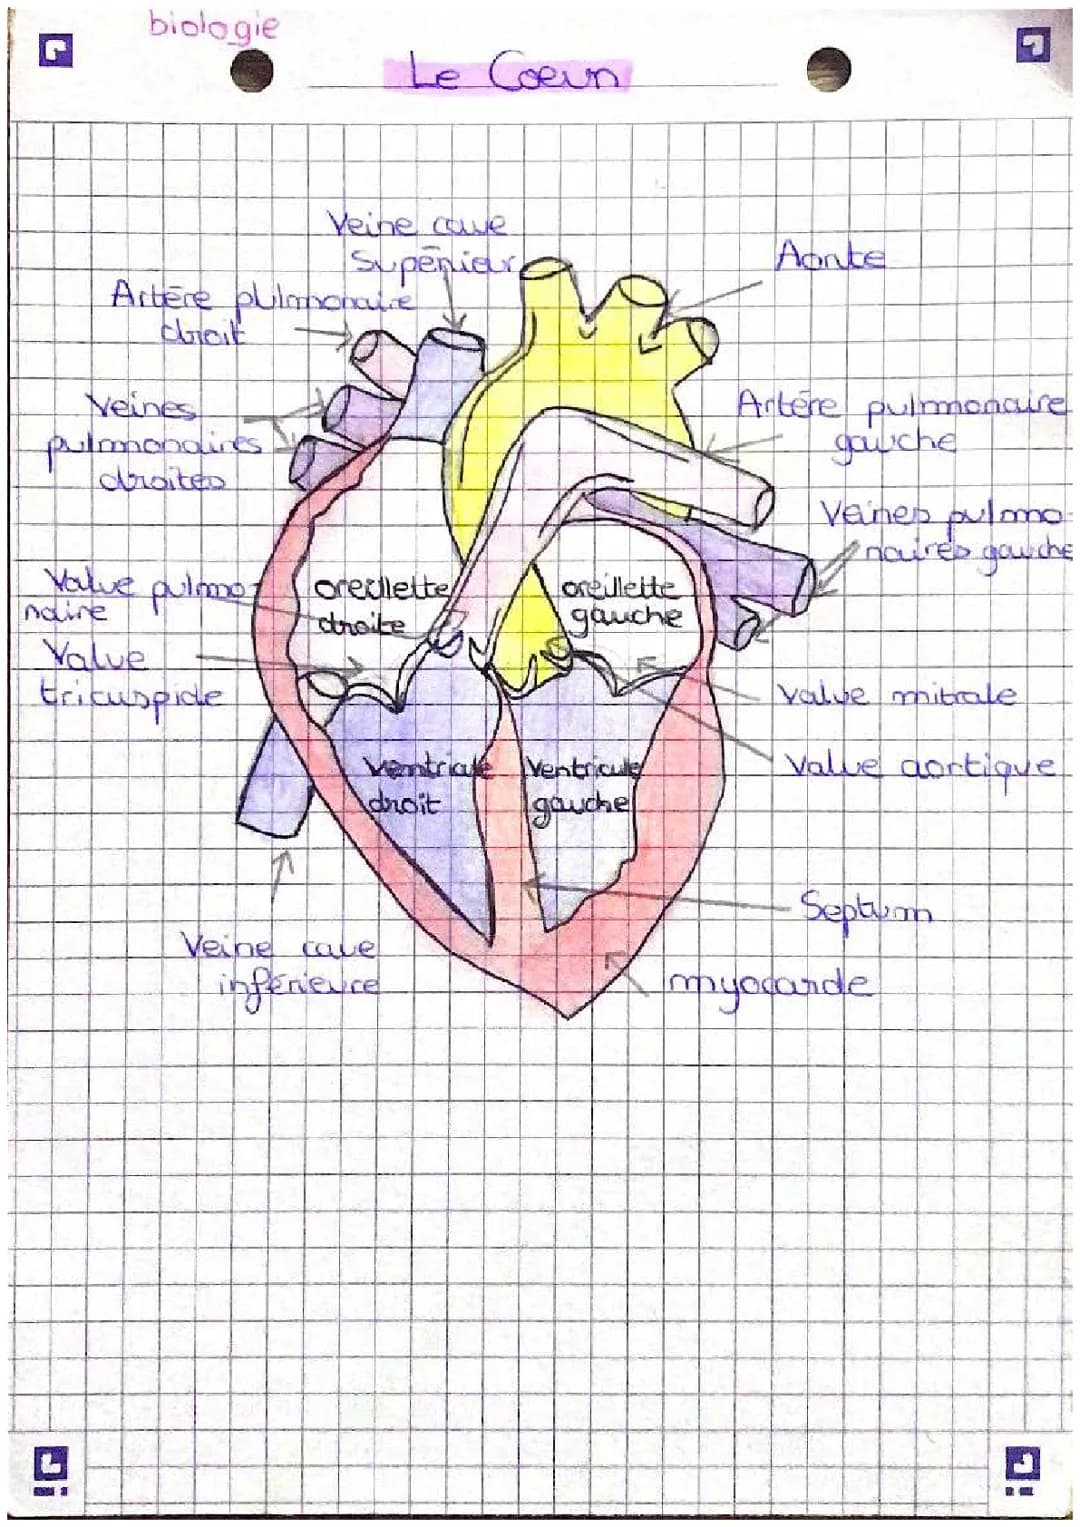 biologie
Le Coeur
Veine cave
Supérieur
Aorte
Artère pulmonaire
droit
Veines
pulmonaires
droites
Artére pulmonaire
gauche
Veines pulmo
naires gauche
Valve pulmo
naire
oreillette
droite
oreillette
gauche
Valve
tricuspide
Valve mitrale
Valve aortique
Ventricule
droit
Ventricule
gauche
Septum
Veine cave
inférieure
myocarde